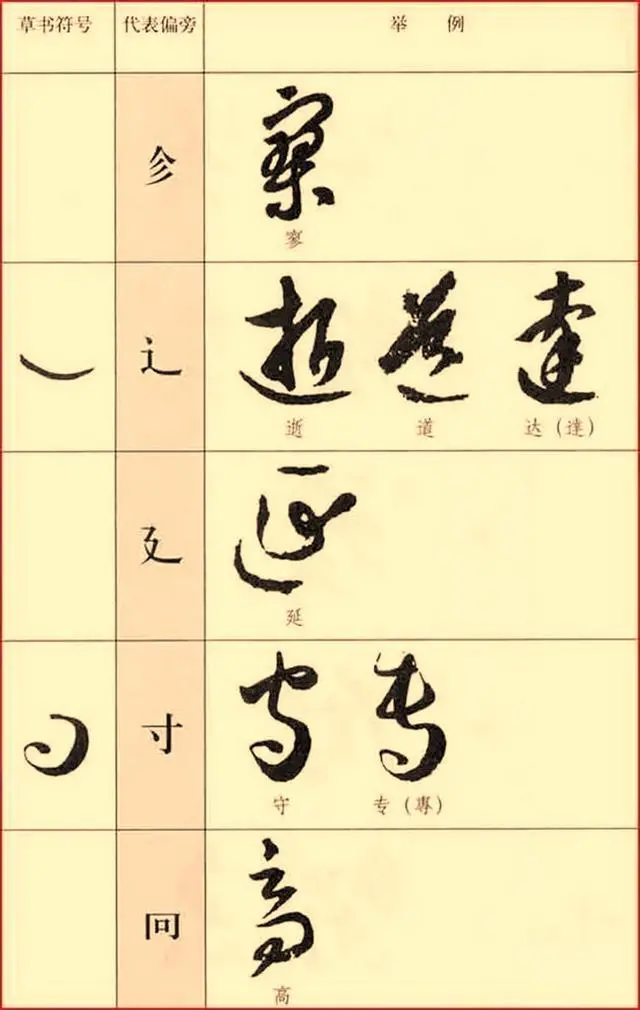 草书符号 代表偏旁 举例
㐱
寥
辶
逝 道 达（達）
廴
延
寸
守 专（專）
冋
高